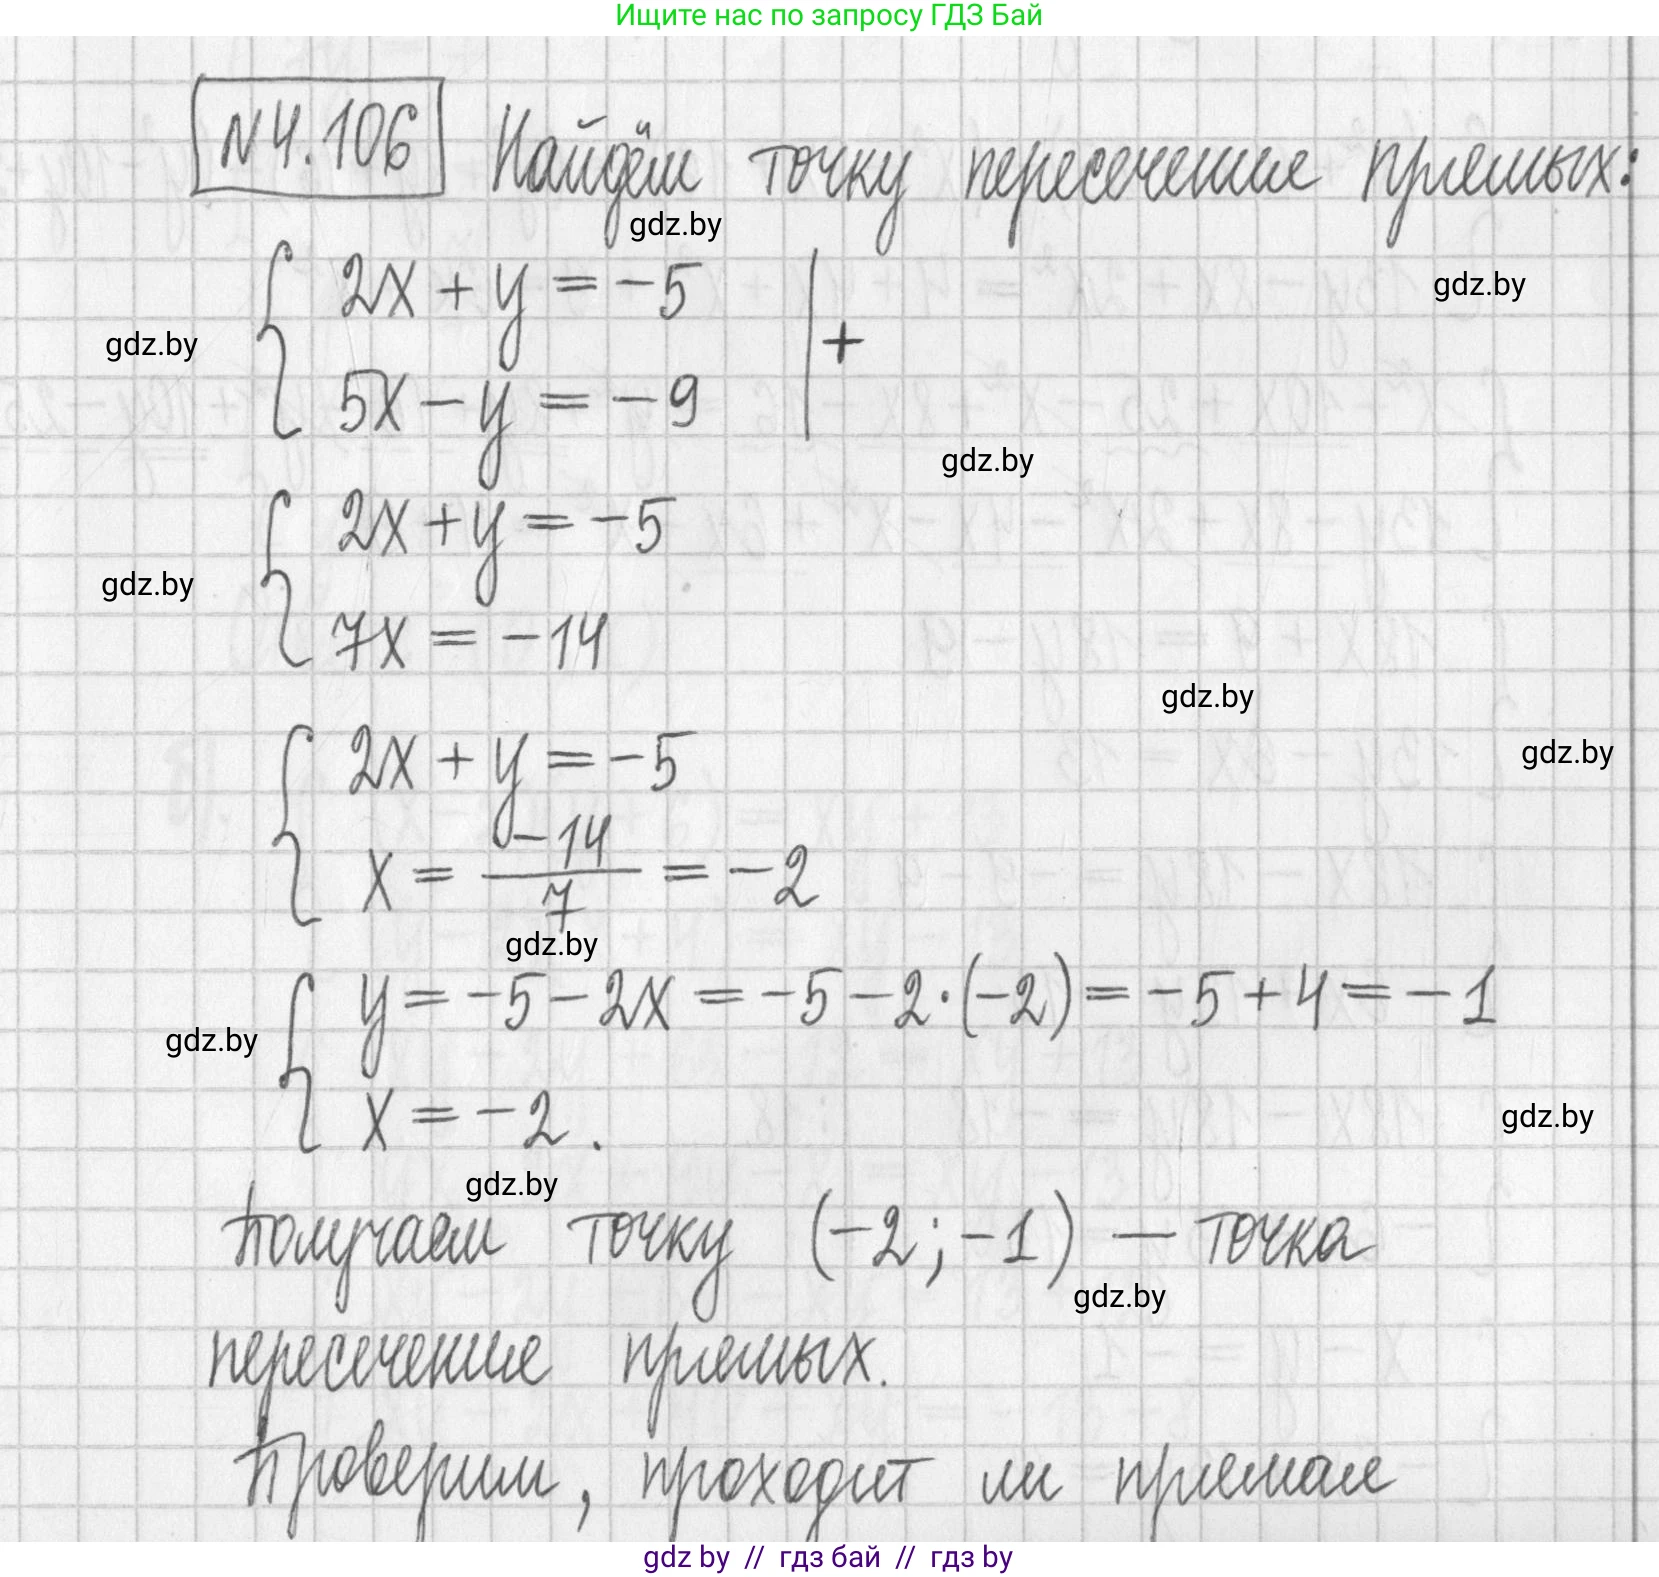 Ищите нас по запросу ГДЗ Бай
N4.106 Найдём точку пересечение прямых:
gdz.by
2x + y = -5
gdz.by
gdz.by
+
5x - y = -9
gdz.by
2x + y = -5
gdz.by
7x = -14
gdz.by
2x + y = -5
gdz.by
x = -14/7 = -2
gdz.by
y = -5 - 2x = -5 - 2·(-2) = -5 + 4 = -1
gdz.by
x = -2.
gdz.by
gdz.by
Получаем точку (-2; -1) — точка
gdz.by
пересечение прямых.
Проверим, проходит ли прямая
gdz by // гдз бай // гдз by